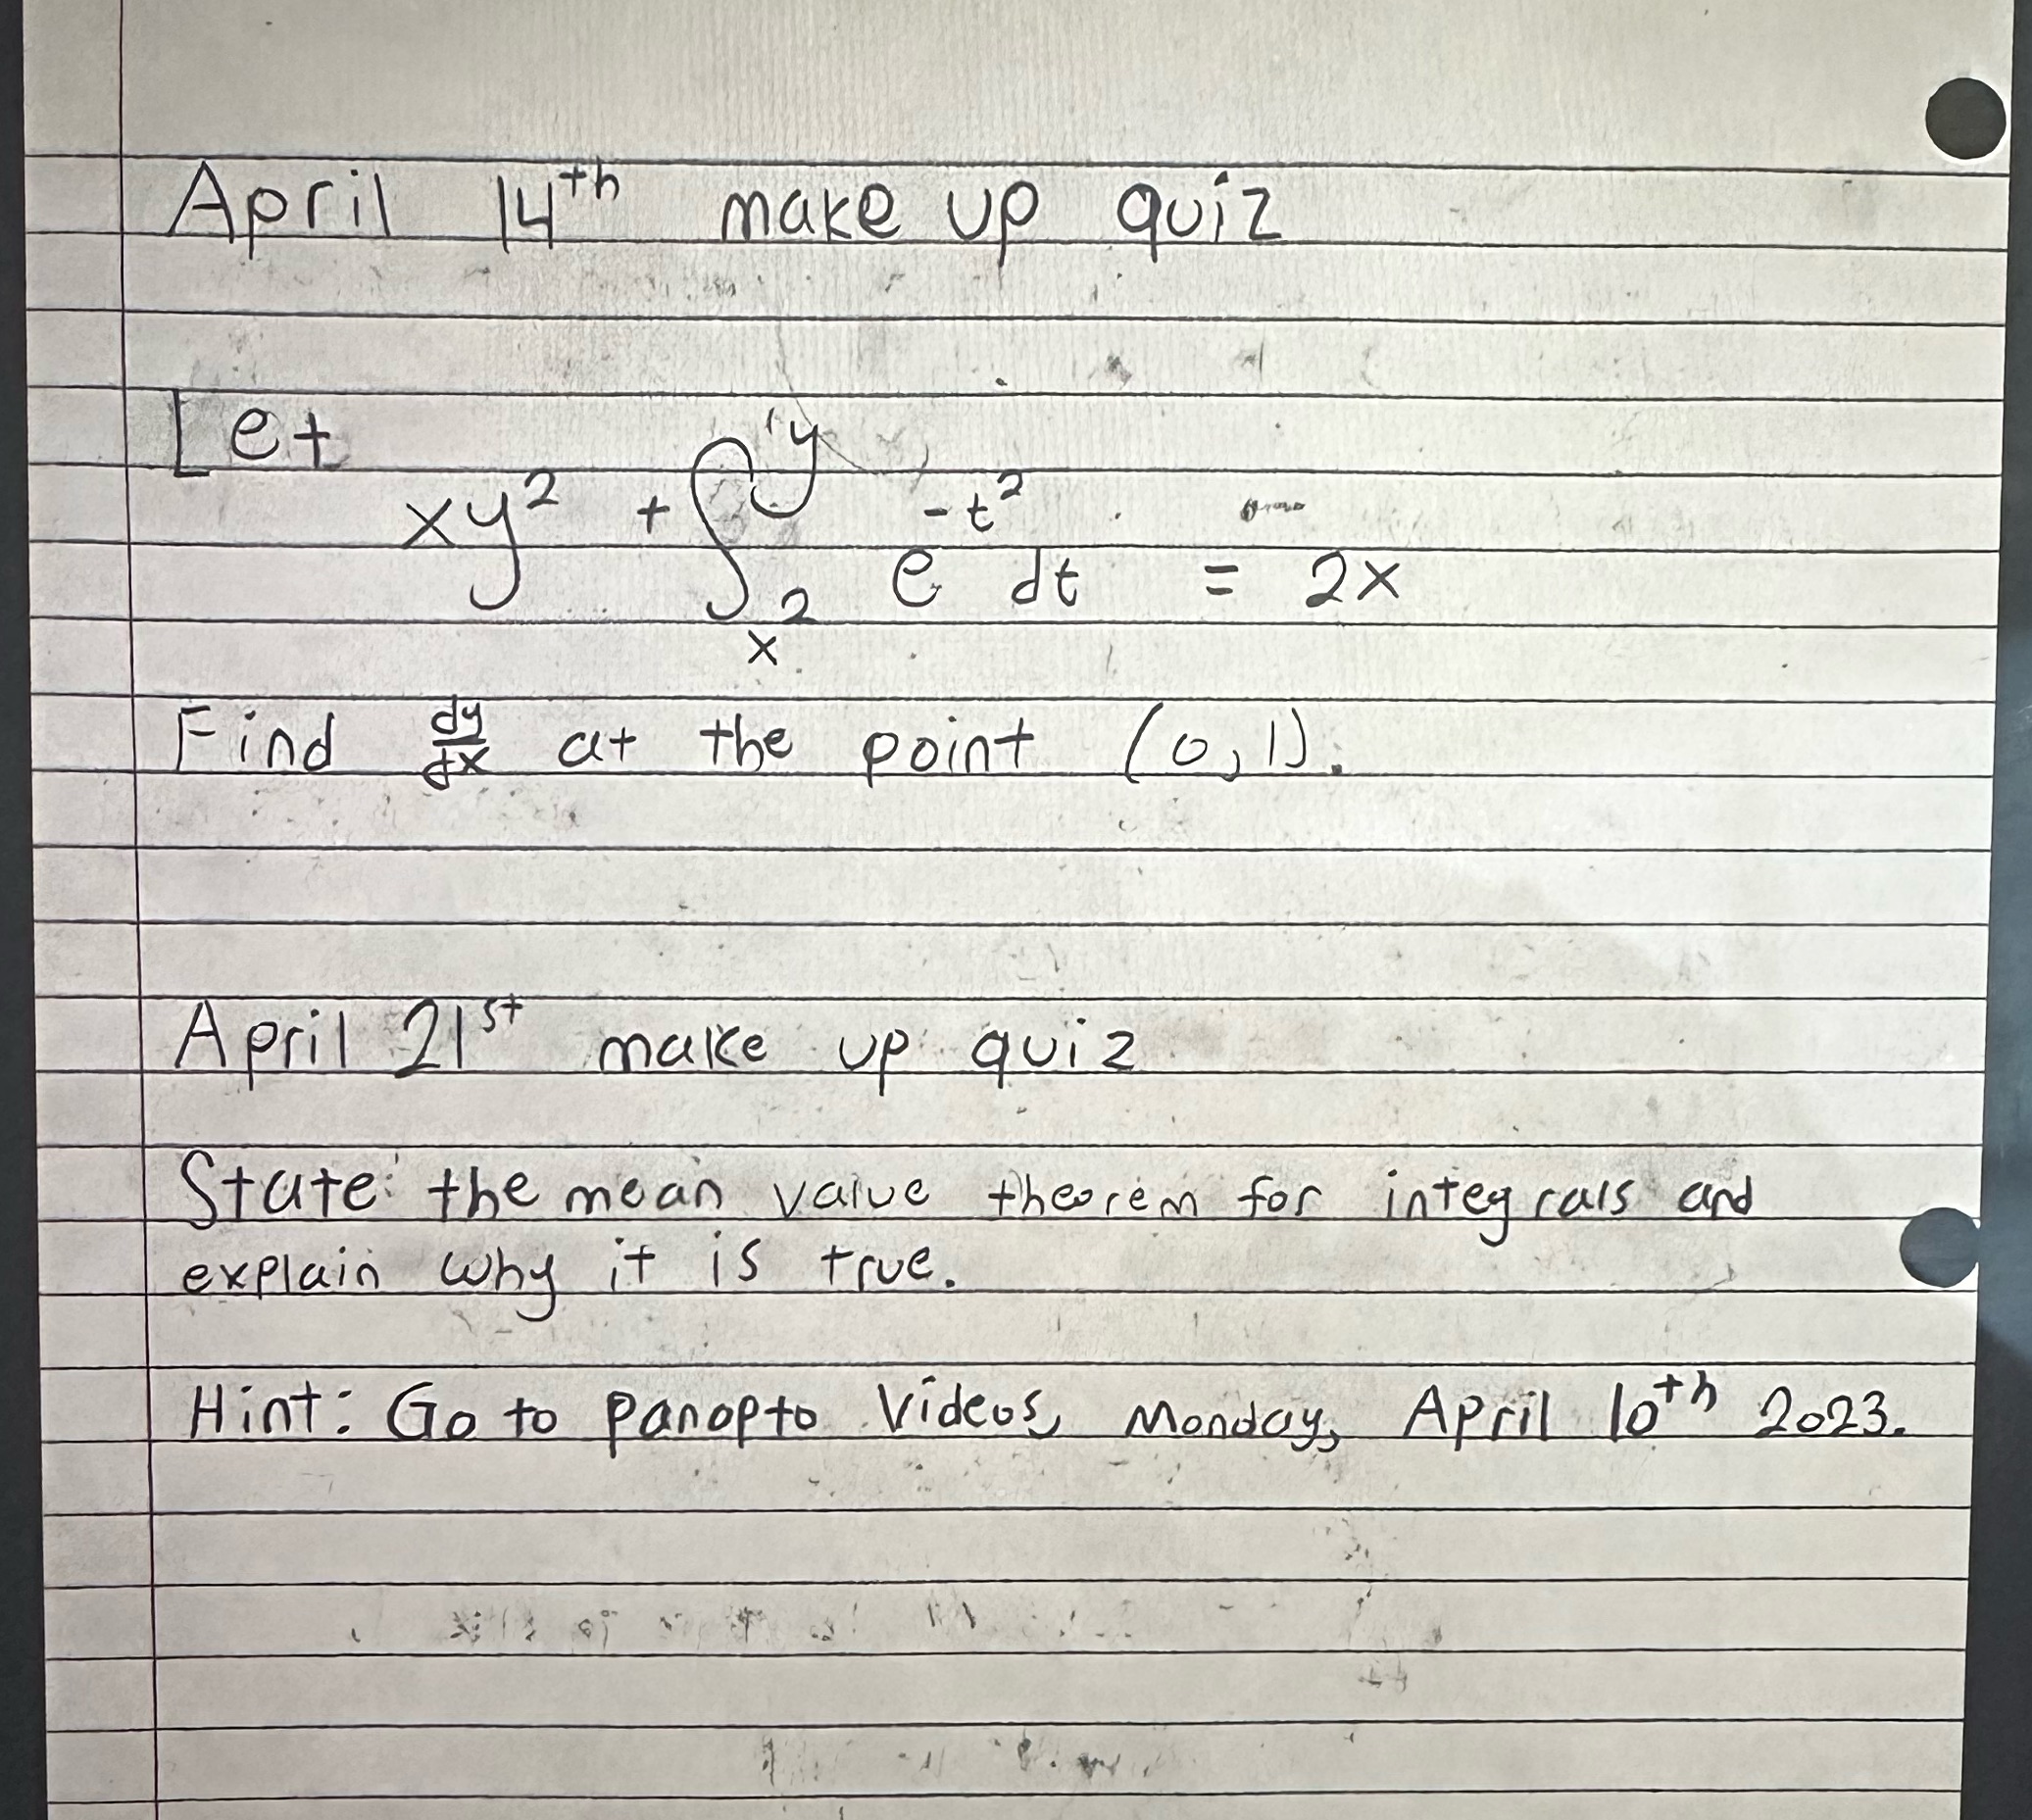 April 14th make up quiz
Let
xy² + ∫_{x²}^{y} e^{-t²} dt = 2x
Find dy/dx at the point (0,1).
April 21st make up quiz
State the mean value theorem for integrals and
explain why it is true.
Hint: Go to panopto Videos, Monday, April 10th 2023.